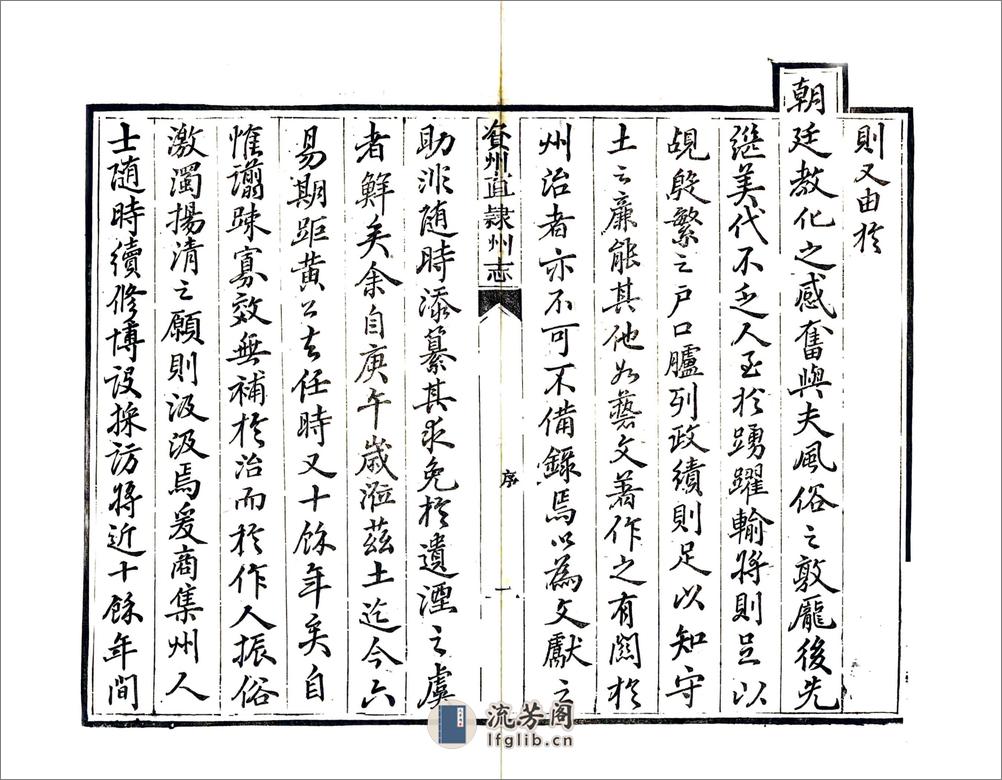 則又由於
朝廷教化之感奮與夫風俗之敦龐後先
繼美代不乏人至於踴躍輸將則足以
覘殷繁之戶口臚列政績則足以知守
土之廉能其他如藝文著作之有關於
州治者亦不可不備錄焉以為文獻之
資州直隸州志
序
一
助非隨時添纂其求免於遺湮之虞
者鮮矣余自庚午歲涖茲土迄今六
易期距黃公去任時又十餘年矣自
惟謭疎寡效無補於治而於作人振俗
激濁揚清之願則汲汲焉爰商集州人
士隨時續修博設採訪將近十餘年間
流芳阁
lfglib.cn